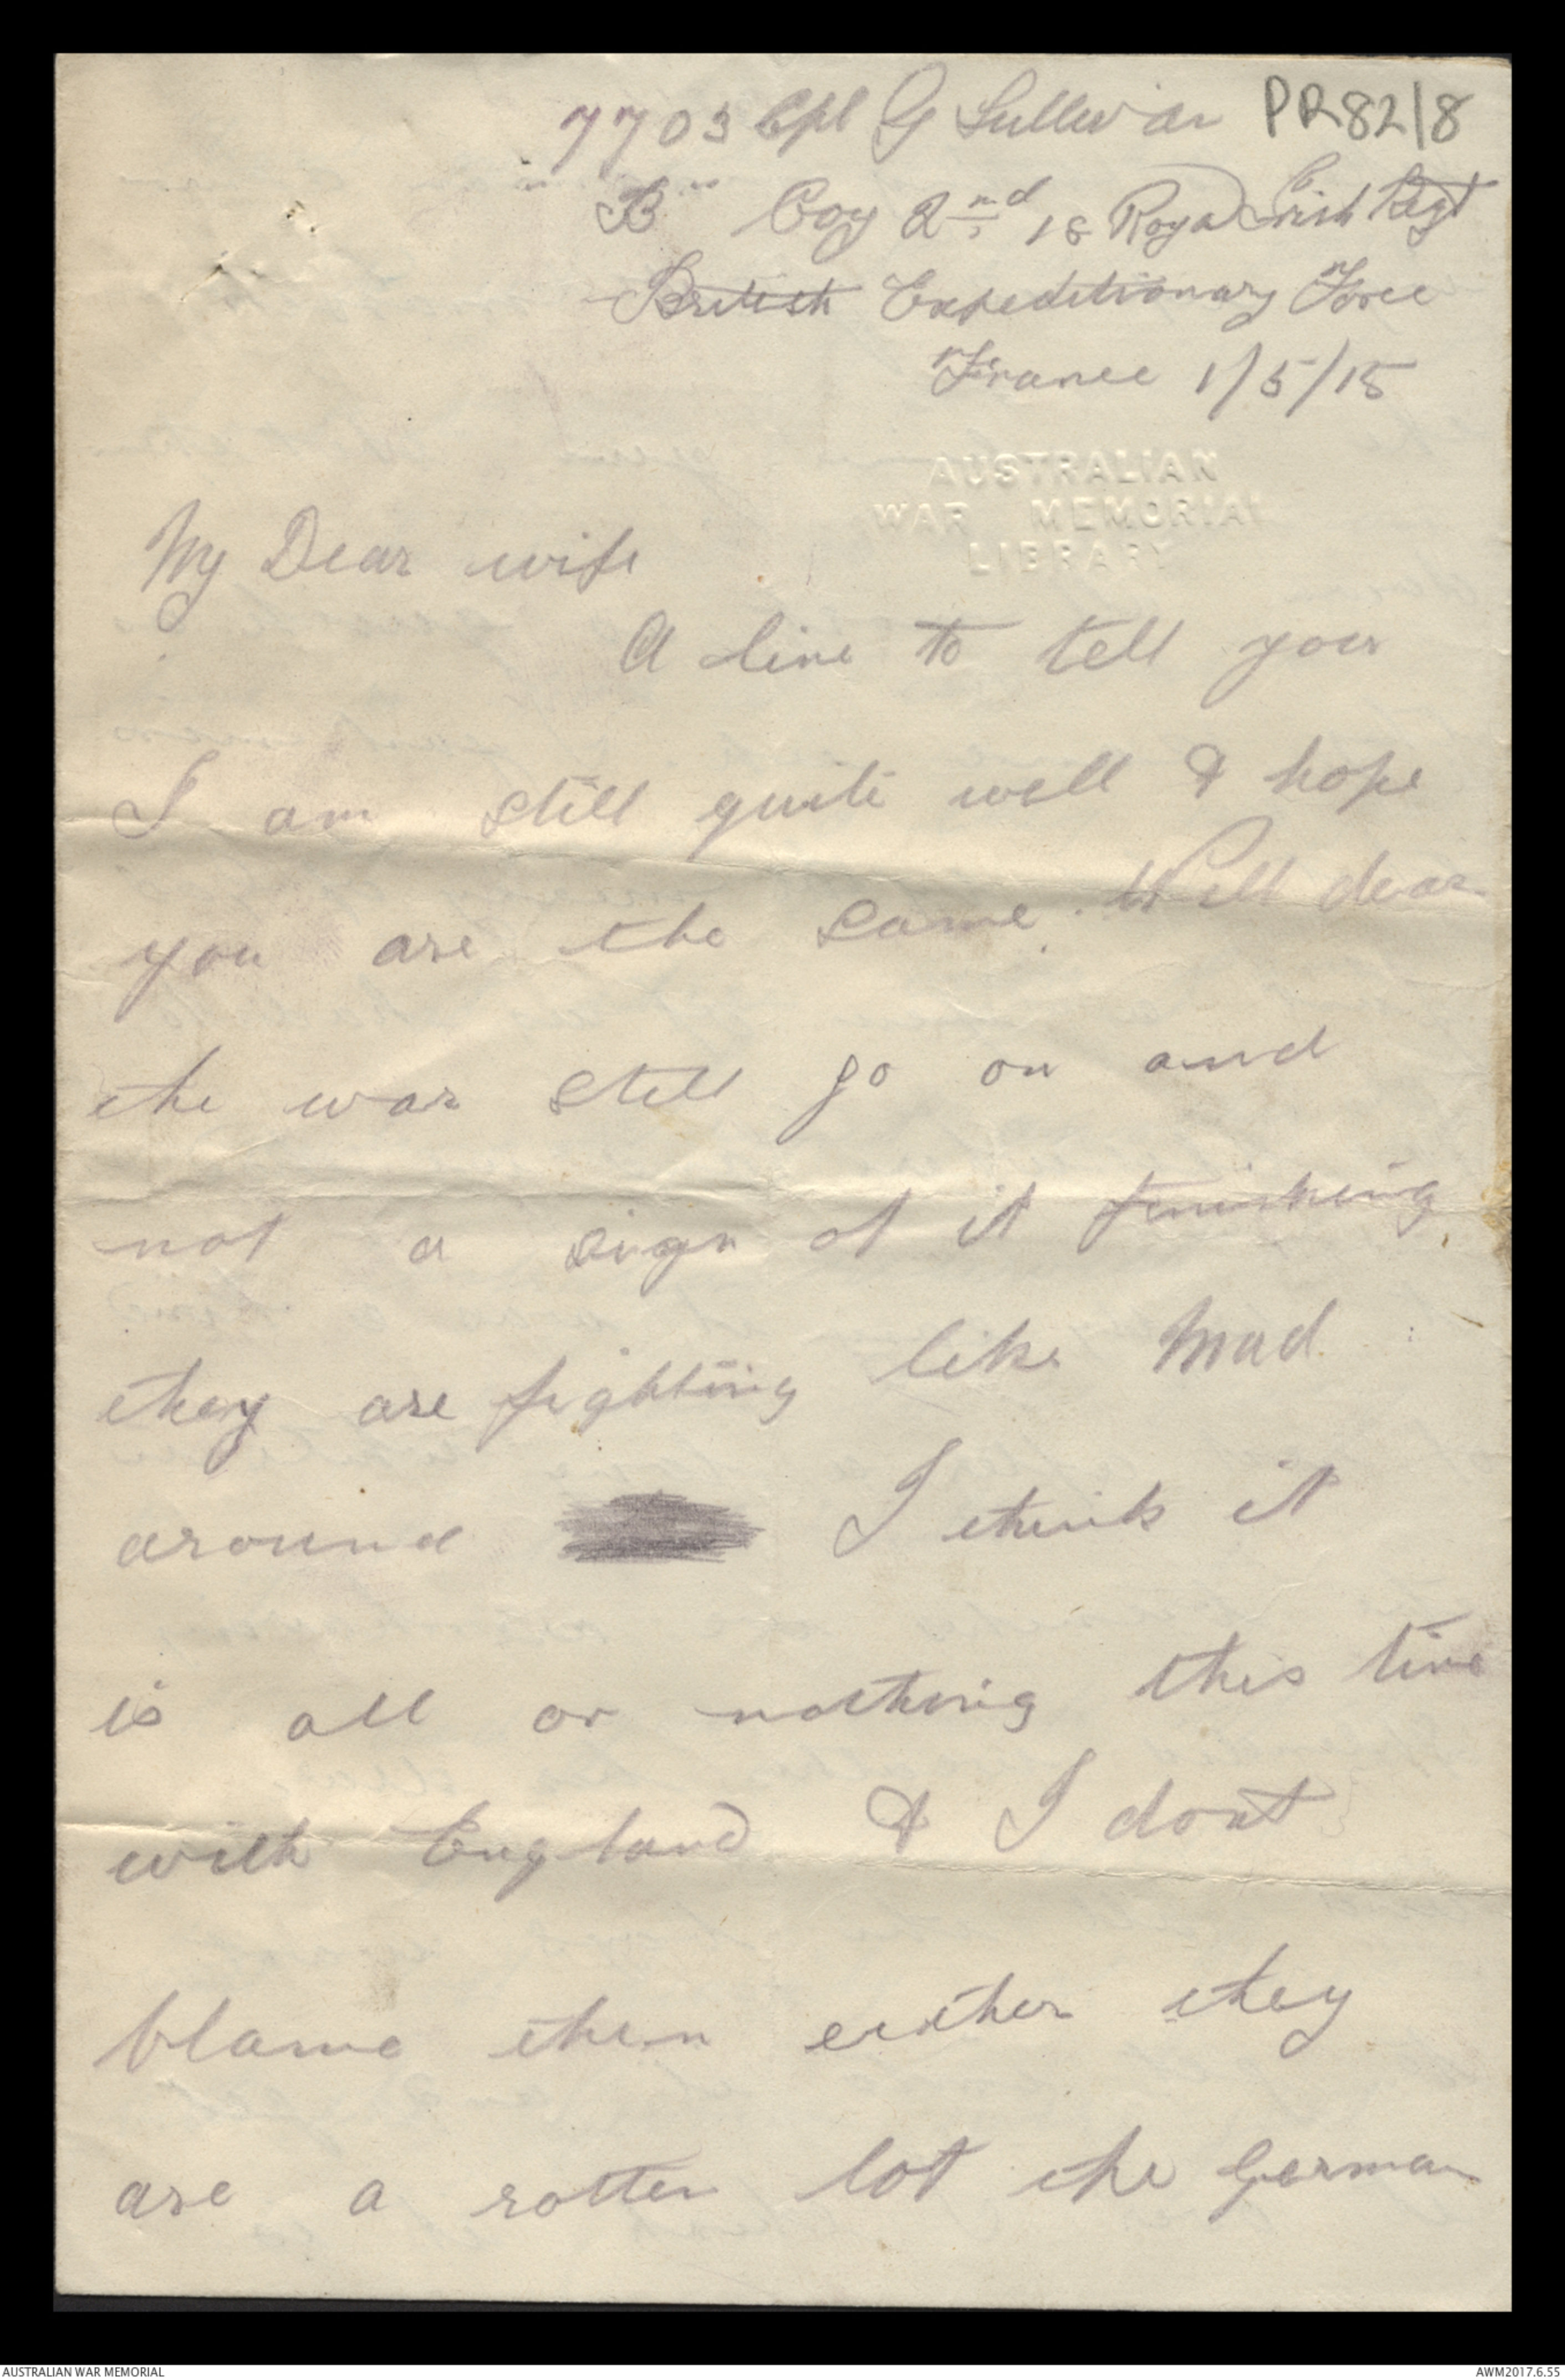 7703 Cpl G Sullivan PR82/8
"B" Coy 2nd 18 Royal Irish Regt
British Expeditionary Force
France 1/5/15
AUSTRALIAN
WAR MEMORIAL
LIBRARY
My Dear wife
A line to tell you
I am still quite well & hope
you are the same. Well dear
the war still go on and
not a sign of it finishing
they are fighting like mad
around I think it
is all or nothing this time
with England & I dont
blame them either they
are a rotten lot the German
AUSTRALIAN WAR MEMORIAL
AWM2017.6.55